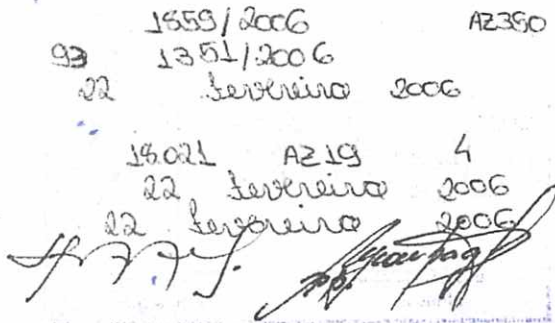 1859/2006 AZ390
93 1351/2006
22 fevereiro 2006
18.021 AZ19 4
22 fevereiro 2006
22 fevereiro 2006